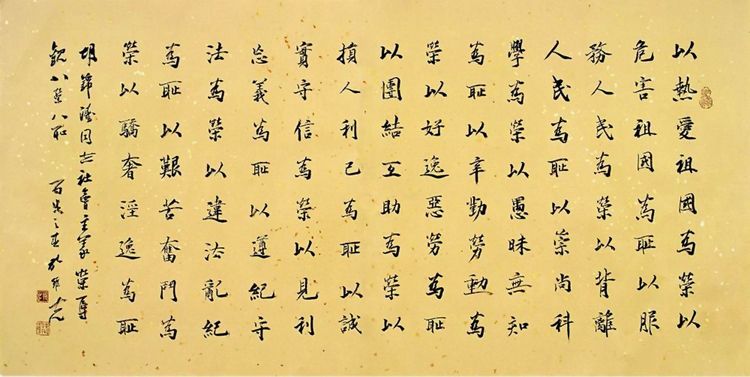 以熱愛祖國為榮以
危害祖國為耻以服
務人民為榮以背離
人民為耻以崇尚科
學為榮以愚昧無知
為耻以辛勤勞動為
榮以好逸惡勞為耻
以團結互助為榮以
損人利己為耻以誠
實守信為榮以見利
忘義為耻以遵紀守
法為榮以違法亂紀
為耻以艱苦奮鬥為
榮以驕奢淫逸為耻
胡錦濤同志社會主義榮辱
觀八榮八耻